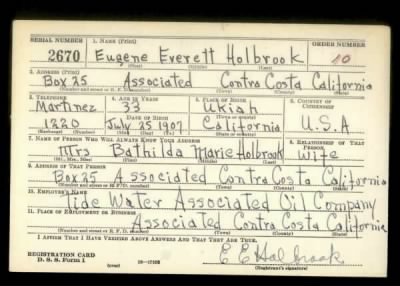 SERIAL NUMBER 1. NAME (Print) ORDER NUMBER
2670 Eugene Everett Holbrook 10
(First) (Middle) (Last)
2. ADDRESS (Print)
Box 25 Associated Contra Costa California
(Number and street or R. F. D. number) (Town) (County) (State)
3. TELEPHONE 4. AGE IN YEARS 5. PLACE OF BIRTH 6. COUNTRY OF CITIZENSHIP
Martinez 33 Ukiah
DATE OF BIRTH (Town or county)
1220 July 25 1907 California U.S.A
(Exchange) (Number) (Mo.) (Day) (Yr.) (State or country)
7. NAME OF PERSON WHO WILL ALWAYS KNOW YOUR ADDRESS 8. RELATIONSHIP OF THAT PERSON
Mrs Bathilda Marie Holbrook Wife
(Mr., Mrs., Miss) (First) (Middle) (Last)
9. ADDRESS OF THAT PERSON
Box 25 Associated Contra Costa California
(Number and street or R. F. D. number) (Town) (County) (State)
10. EMPLOYER'S NAME
Tide Water Associated Oil Company
11. PLACE OF EMPLOYMENT OR BUSINESS
Associated Contra Costa California
(Number and street or R. F. D. number) (Town) (County) (State)
I AFFIRM THAT I HAVE VERIFIED ABOVE ANSWERS AND THAT THEY ARE TRUE.
REGISTRATION CARD E E Holbrook
D. S. S. Form 1 (over) (Registrant's signature)